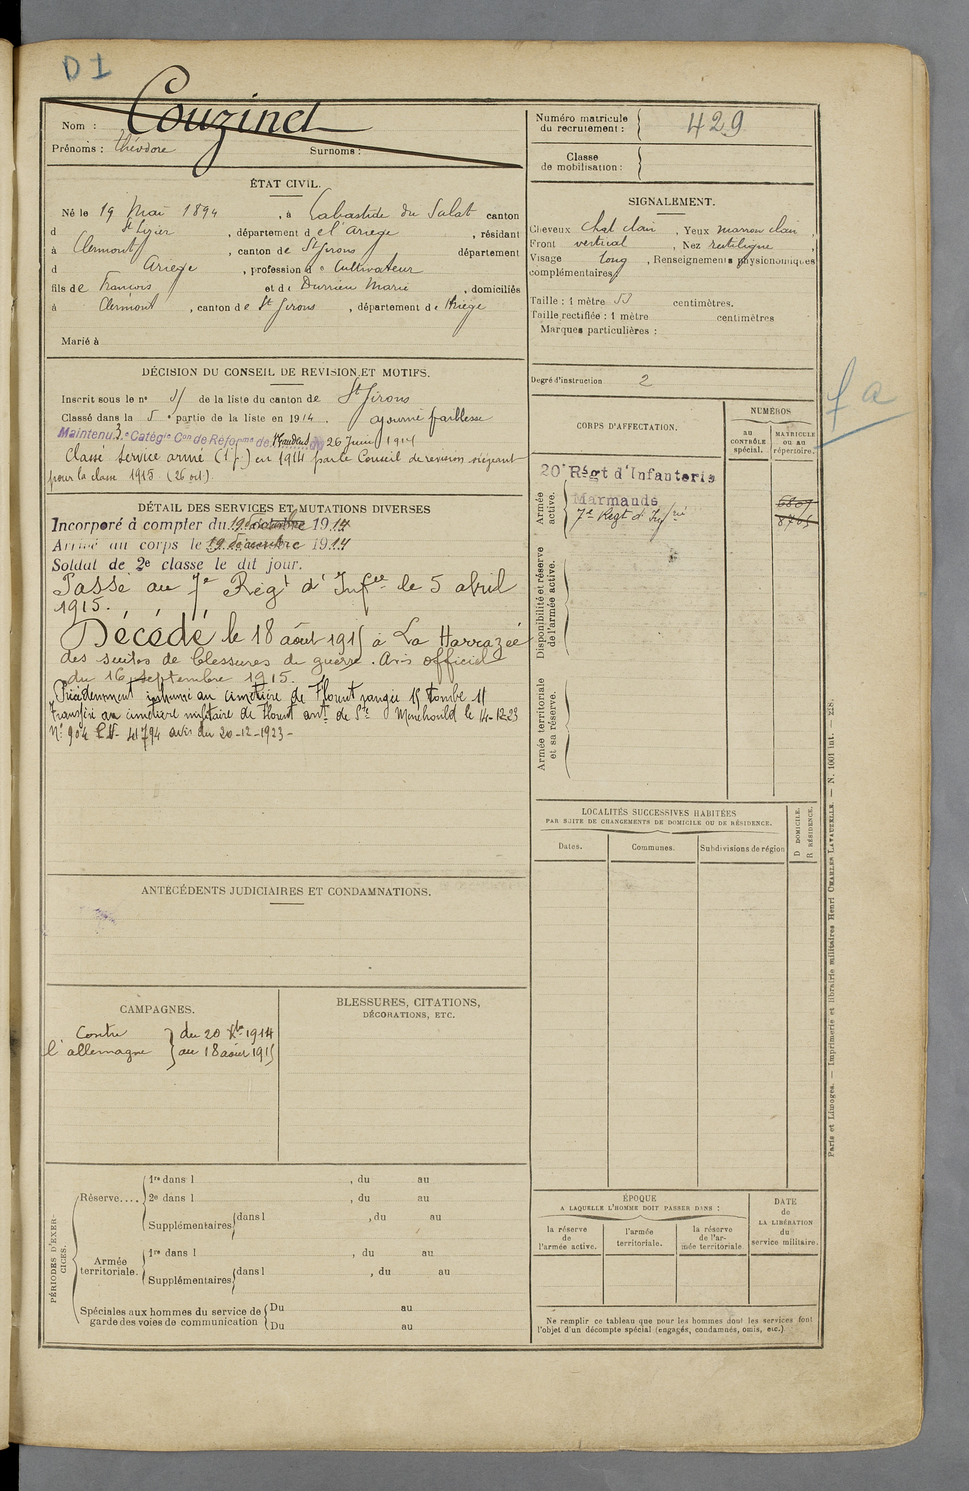 D I
Nom : Couzinet
Prénoms : Théodore Surnoms :
Numéro matricule
du recrutement : 429
Classe
de mobilisation :
ÉTAT CIVIL.
Né le 19 Mai 1894, à Labastide du Salat canton
d St Lizier, département de l'Ariège, résidant
à Clermont, canton de St Girons département
d Ariège, profession de Cultivateur
fils de François et de Durrieu Marie, domiciliés
à Clermont, canton de St Girons, département de Ariège
Marié à
SIGNALEMENT.
Cheveux chat clair, Yeux marron clair,
Front vertical, Nez rectiligne,
Visage long, Renseignements physionomiques
complémentaires
Taille : 1 mètre 53 centimètres.
Taille rectifiée : 1 mètre centimètres
Marques particulières :
Degré d'instruction 2
DÉCISION DU CONSEIL DE REVISION ET MOTIFS.
Inscrit sous le no de la liste du canton de St Girons
Classé dans la 5e partie de la liste en 1914. ajourné faiblesse
Maintenu 3e Catégie Con de Réforme de du 26 Juin 1914
Classé Service armé (1 p.) en 1914 par le Conseil de revision siégeant
pour la classe 1915 (26 oct).
DÉTAIL DES SERVICES ET MUTATIONS DIVERSES
Incorporé à compter du 19 décembre 1914
Arrivé au corps le 19 décembre 1914
Soldat de 2e classe le dit jour.
Passé au 7e Régt d'Infrie le 5 avril
1915.
Décédé le 18 août 1915 à La Harrazée
des suites de blessures de guerre. Avis officiel
du 16 septembre 1915.
Précédemment inhumé au cimetière de Florent rangée 15 tombe 11
Transféré au cimetière militaire de Florent arrt de Ste Menehould le 14-12-23
No 904 41794 avis du 20-12-1923-
CORPS D'AFFECTATION.
NUMÉROS
au
CONTRÔLE
spécial.
MATRICULE
ou au
répertoire.
Armée
active.
20e Régt d'Infanterie
Marmande 6807
7e Régt d'Infrie 8765
Disponibilité et réserve
de l'armée active.
Armée territoriale
et sa réserve.
f a
LOCALITÉS SUCCESSIVES HABITÉES
PAR SUITE DE CHANGEMENTS DE DOMICILE OU DE RÉSIDENCE.
Dates. Communes. Subdivisions de région
D DOMICILE.
R RÉSIDENCE.
ANTÉCÉDENTS JUDICIAIRES ET CONDAMNATIONS.
CAMPAGNES.
Contre du 20 Xbre 1914
l'allemagne au 18 août 1915
BLESSURES, CITATIONS,
DÉCORATIONS, ETC.
PÉRIODES D'EXERCICES.
Réserve....
1re dans l , du au
2e dans l , du au
Supplémentaires dans l , du au
Armée
territoriale.
1re dans l , du au
Supplémentaires dans l , du au
Spéciales aux hommes du service de
garde des voies de communication
Du au
Du au
ÉPOQUE
A LAQUELLE L'HOMME DOIT PASSER DANS :
la réserve
de
l'armée active.
l'armée
territoriale.
la réserve
de l'ar-
mée territoriale
DATE
de
LA LIBÉRATION
du
service militaire.
Ne remplir ce tableau que pour les hommes dont les services font
l'objet d'un décompte spécial (engagés, condamnés, omis, etc.)
Paris et Limoges. — Imprimerie et librairie militaires Henri CHARLES-LAVAUZELLE. — N. 1001 int. — 218.